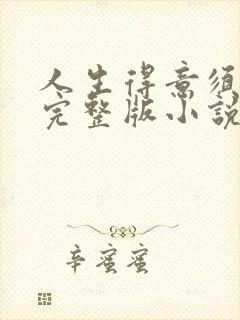 人生得意须
完整版小説
辛蜜蜜